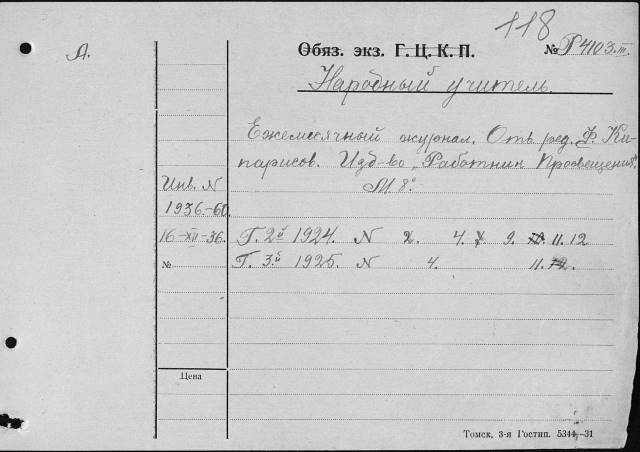 118
А.
Обяз. экз. Г. Ц. К. П.
№ Р4103 III
Народный учитель.
Ежемесячный журнал. Отв. ред. Ф. Ки-
парисов. Изд-во „Работник Просвещения".
М. 8°
Инв. N
1936.-60.
16-XII-36.
Г. 2й 1924. N 2. 4. 9. 11. 12
№ Г. 3й 1925. N 4. 11.
Цена
Томск, 3-я Гостип. 5344—31